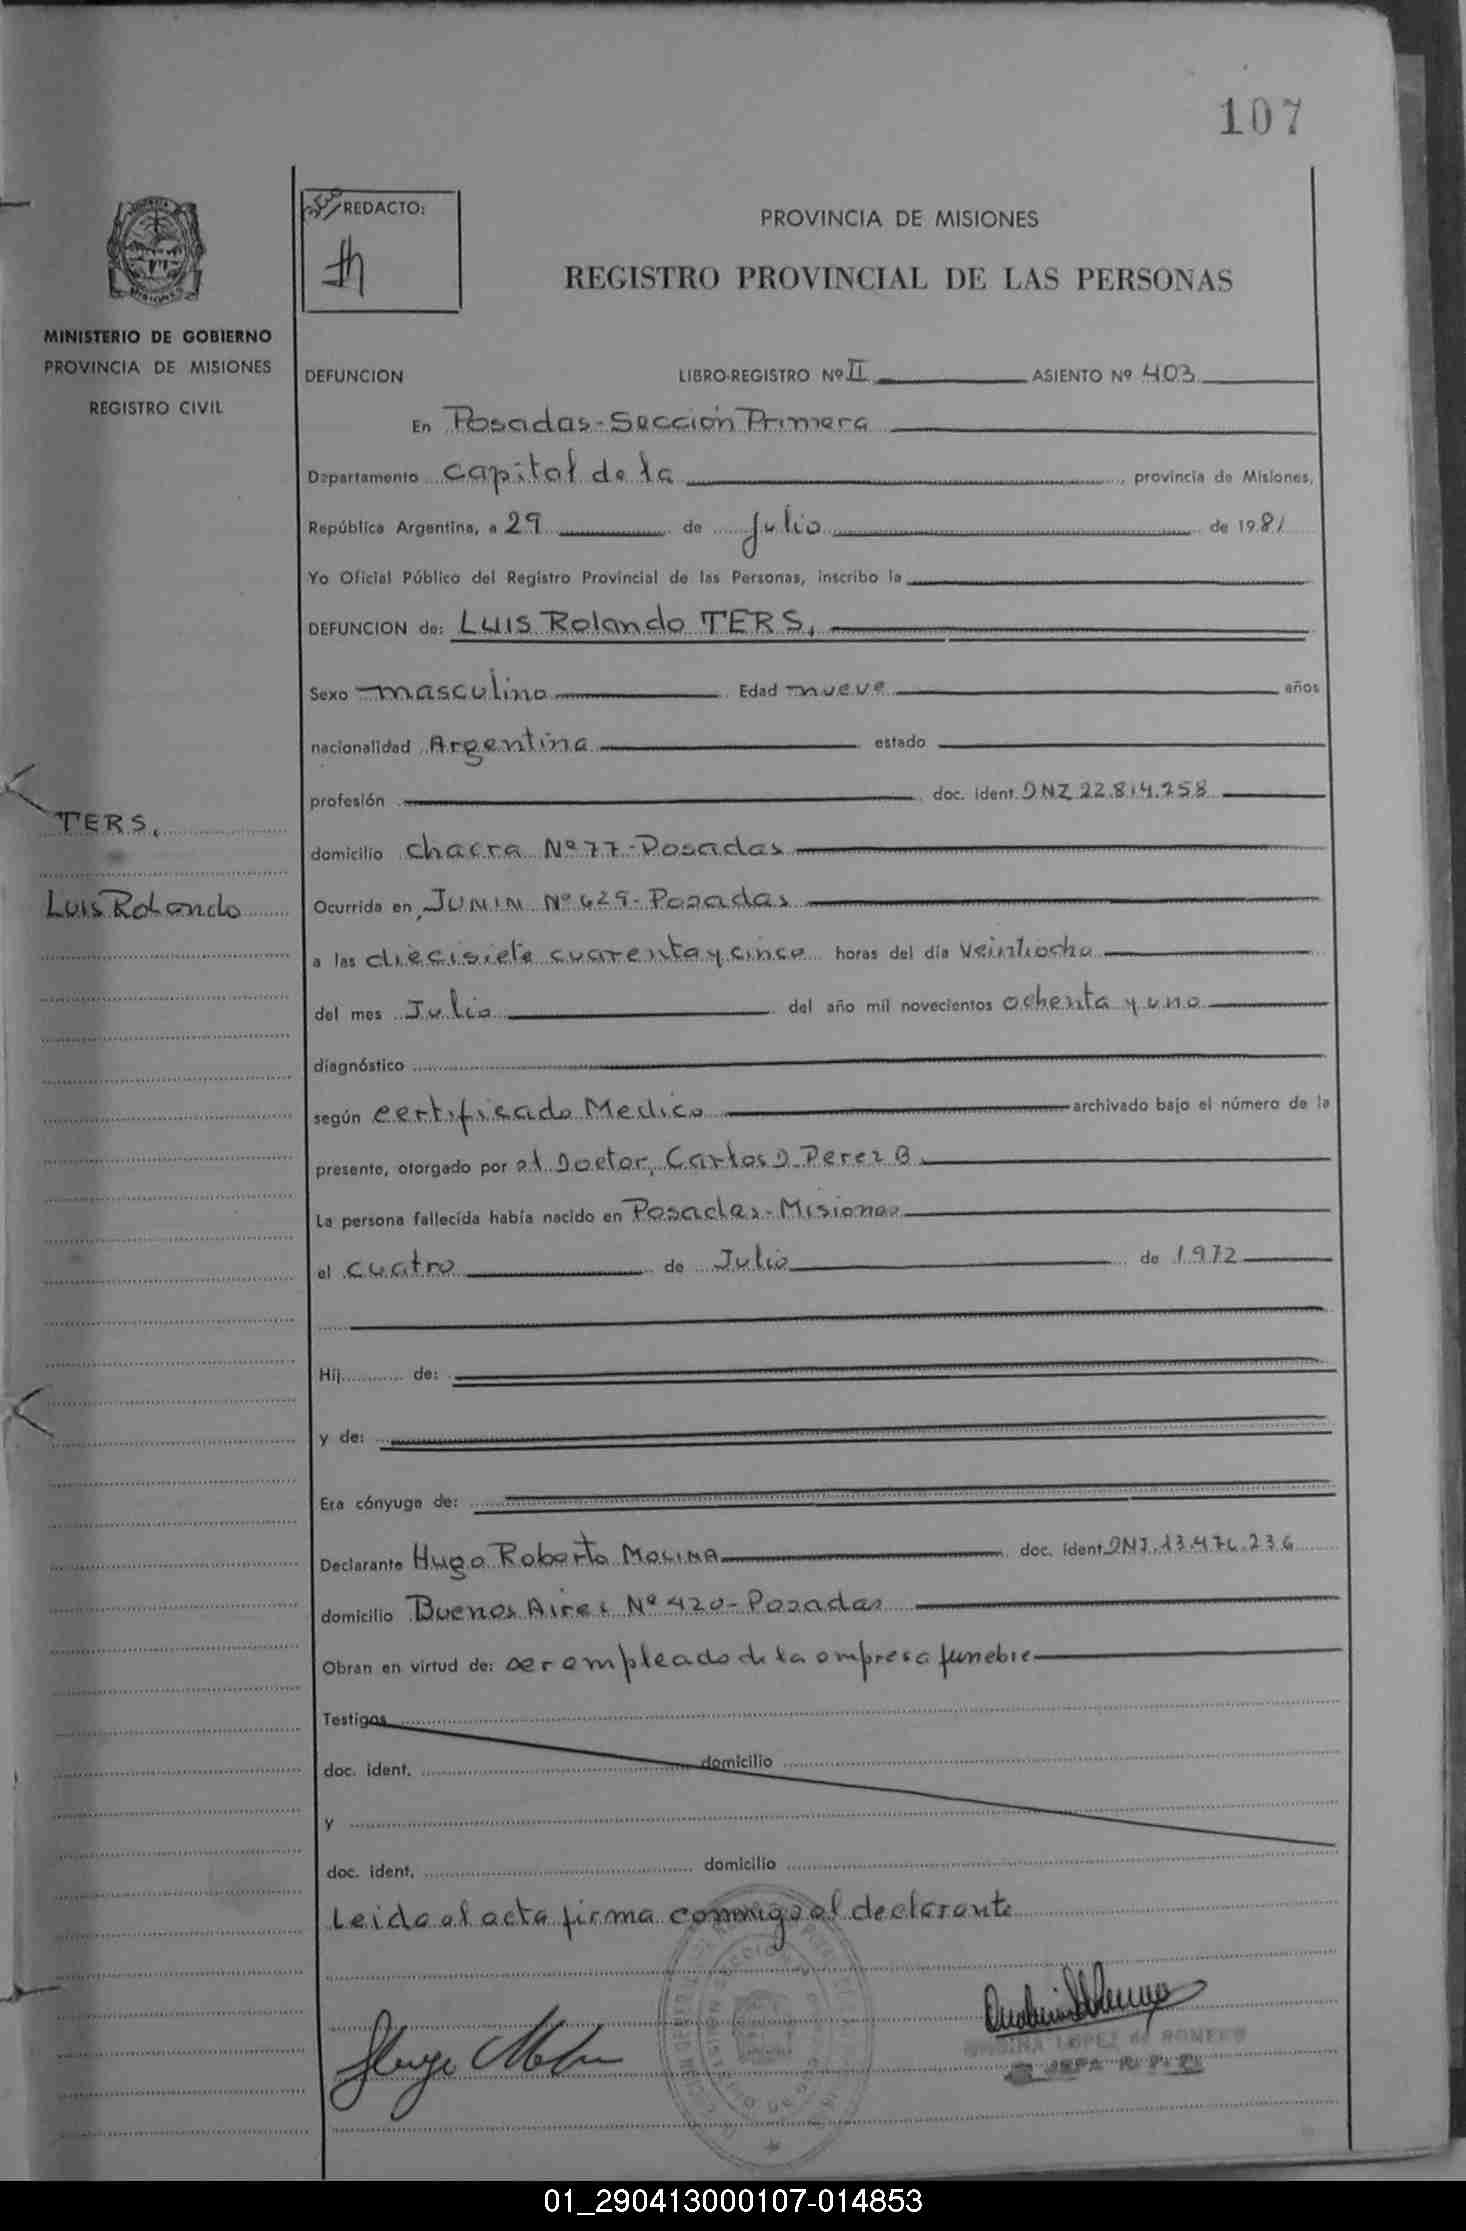 107
REDACTO:
PROVINCIA DE MISIONES
REGISTRO PROVINCIAL DE LAS PERSONAS
MINISTERIO DE GOBIERNO
PROVINCIA DE MISIONES
REGISTRO CIVIL
DEFUNCION LIBRO-REGISTRO Nº II ASIENTO Nº 403
En Posadas-Sección Primera
Departamento Capital de la provincia de Misiones,
República Argentina, a 29 de Julio de 1981
Yo Oficial Público del Registro Provincial de las Personas, inscribo la
DEFUNCION de: Luis Rolando TERS,
Sexo masculino Edad nueve años
nacionalidad Argentina estado
profesión doc. ident. DNI 22.814.758
TERS,
domicilio chacra Nº 77-Posadas
Luis Rolando
Ocurrida en JUNIN Nº 629-Posadas
a las diecisiete cuarenta y cinco horas del día veintiocho
del mes Julio del año mil novecientos ochenta y uno
diagnóstico
según certificado Medico archivado bajo el número de la
presente, otorgado por el Doctor, Carlos D. Perez B.
La persona fallecida había nacido en Posadas-Misiones
el cuatro de Julio de 1972
Hij de:
y de:
Era cónyuge de:
Declarante Hugo Roberto MOLINA doc. ident. DNI. 13.476.236
domicilio Buenos Aires Nº 420-Posadas
Obran en virtud de: ser empleado de la empresa funebre
Testigos
doc. ident. domicilio
y
doc. ident. domicilio
Leida el acta firma conmigo el declarante
LOPEZ de ROMERO
JEFA R. P. P.
01_290413000107-014853